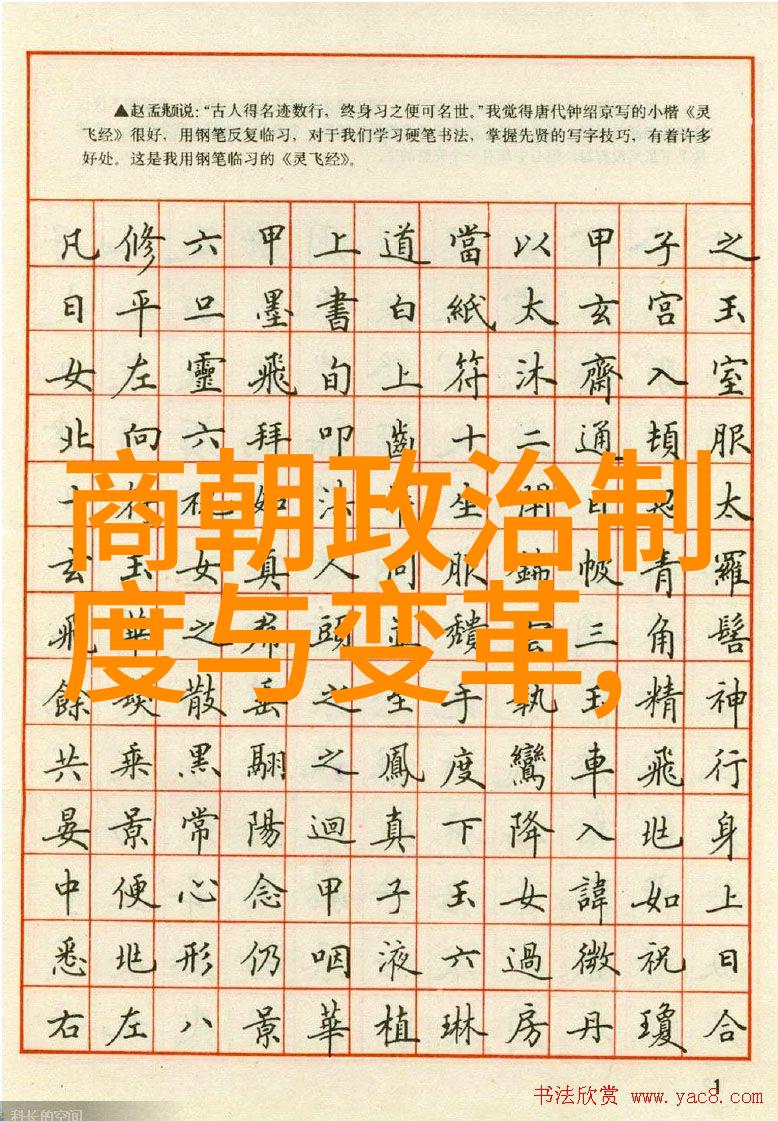 ▲赵孟頫说：“古人得名迹数行，终身习之便可名世。”我觉得唐代钟绍京写的小楷《灵
飞经》很好，用钢笔反复临习，对于我们学习硬笔书法，掌握先贤的写字技巧，有着许多
好处。这是我用钢笔临习的《灵飞经》。
凡修六甲上道當以甲子之
日平旦墨書白紙太玄宮玉
女左靈飛旬上符沐齋入室
北向六拜叩齒十二通頓服
如法生閉目太
商朝政治制
度与变革，
玄玉女真人同服錦帔青羅
飛華之頭三角髻
餘散垂之至手執玉精神
共乘黑翮之鳳度鸞車飛行
晏景常陽迴真下降入身
中便心念甲子玉女諱如上
悉形仍咽液六過微祝日
右左八景華植琳房丹瓊合
1
书法欣赏 www.yac8.com
科长的空间